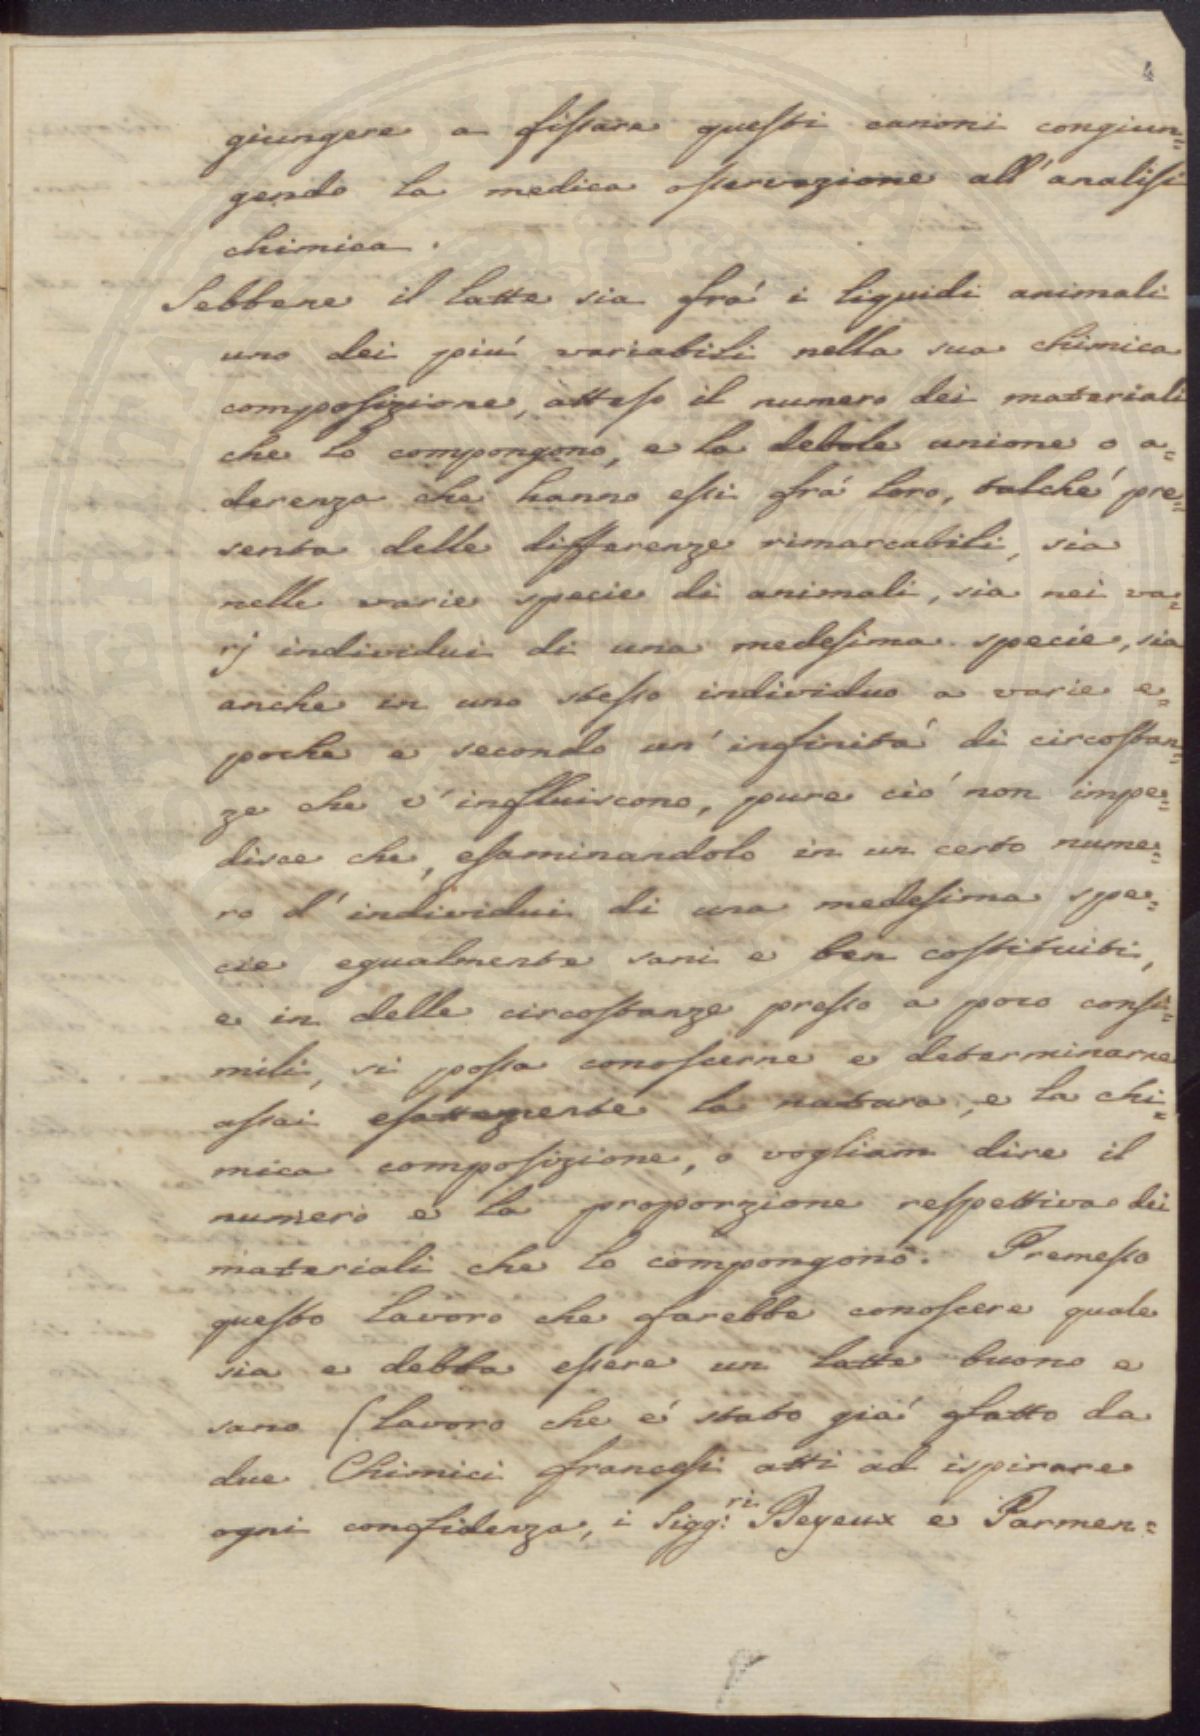 4
giungere a fissare questi canoni congiun=
gendo la medica osservazione all'analisi
chimica.
Sebbene il latte sia frá i liquidi animali
uno dei piú variabili nella sua chimica
composizione, atteso il numero dei materiali
che lo compongono, e la debole unione o a=
derenza che hanno essi frá loro, talché pre=
senta delle differenze rimarcabili, sia
nelle varie specie di animali, sia nei va=
rj individui di una medesima specie, sia
anche in uno stesso individuo a varie e=
poche e secondo un'infinitá di circostan=
ze che v'influiscono, pure ció non impe=
disce che, esaminandolo in un certo nume=
ro d'individui di una medesima spe=
cie egualmente sani e ben costituiti,
e in delle circostanze presso a poco consi=
mili, si possa conoscerne e determinarne
assai esattamente la natura, e la chi=
mica composizione, o vogliam dire il
numero e la proporzione respettiva dei
materiali che lo compongono. Premesso
questo lavoro che farebbe conoscere quale
sia e debba essere un latte buono e
sano (lavoro che é stato giá fatto da
due Chimici francesi atti ad ispirare
ogni confidenza, i Sigg:ri Deyeux e Parmen=